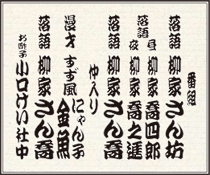 番組
落語 柳家さん坊
落語 昼 柳家喬四郎
夜 柳家喬之進
落語 柳家さん喬
仲入り
漫才 すず風 にゃん子
金魚
落語 柳家さん喬
お囃子 小口けい社中